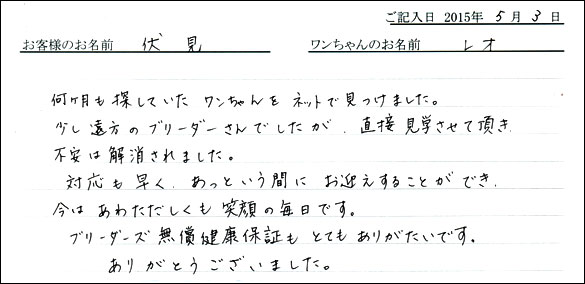 ご記入日 2015年 5月 3日
お客様のお名前 伏見 ワンちゃんのお名前 レオ
何ヶ月も探していたワンちゃんをネットで見つけました。
少し遠方のブリーダーさんでしたが、直接見学させて頂き
不安は解消されました。
対応も早く、あっという間にお迎えすることができ、
今はあわただしくも笑顔の毎日です。
ブリーダーズ無償健康保証もとてもありがたいです。
ありがとうございました。